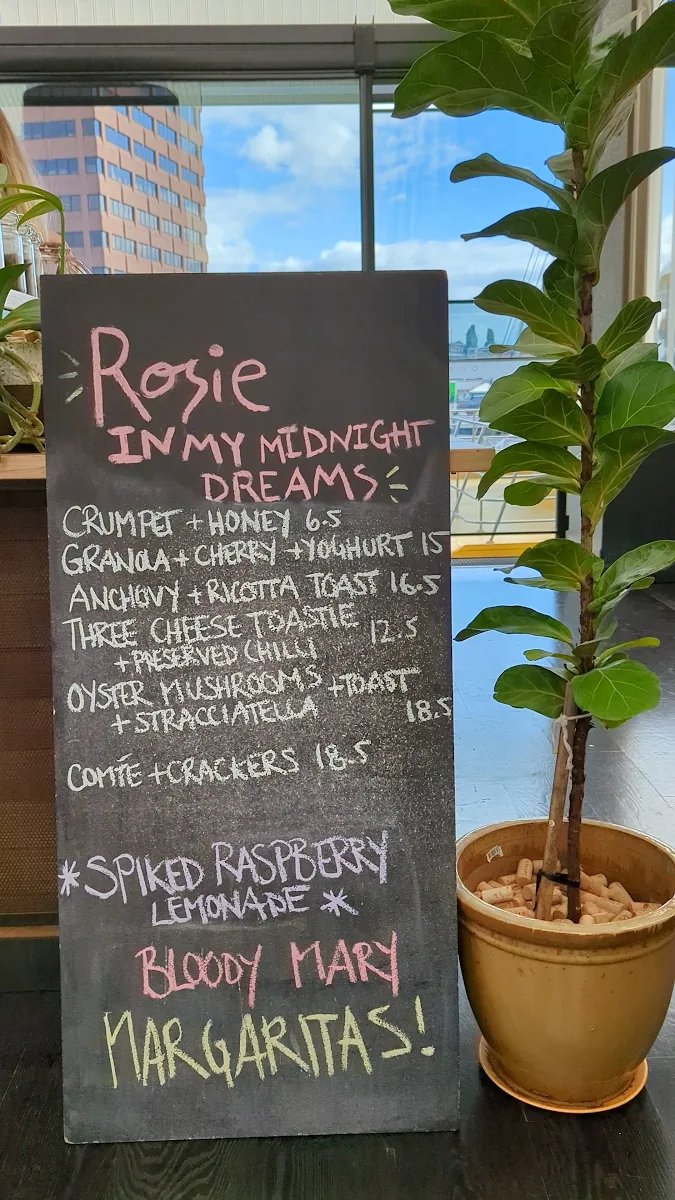 Rosie
IN MY MIDNIGHT
DREAMS
CRUMPET + HONEY 6.5
GRANOLA + CHERRY + YOGHURT 15
ANCHOVY + RICOTTA TOAST 16.5
THREE CHEESE TOASTIE 12.5
+ PRESERVED CHILLI
OYSTER MUSHROOMS + TOAST
+ STRACCIATELLA 18.5
COMTÉ + CRACKERS 18.5
*SPIKED RASPBERRY
LEMONADE *
BLOODY MARY
MARGARITAS!